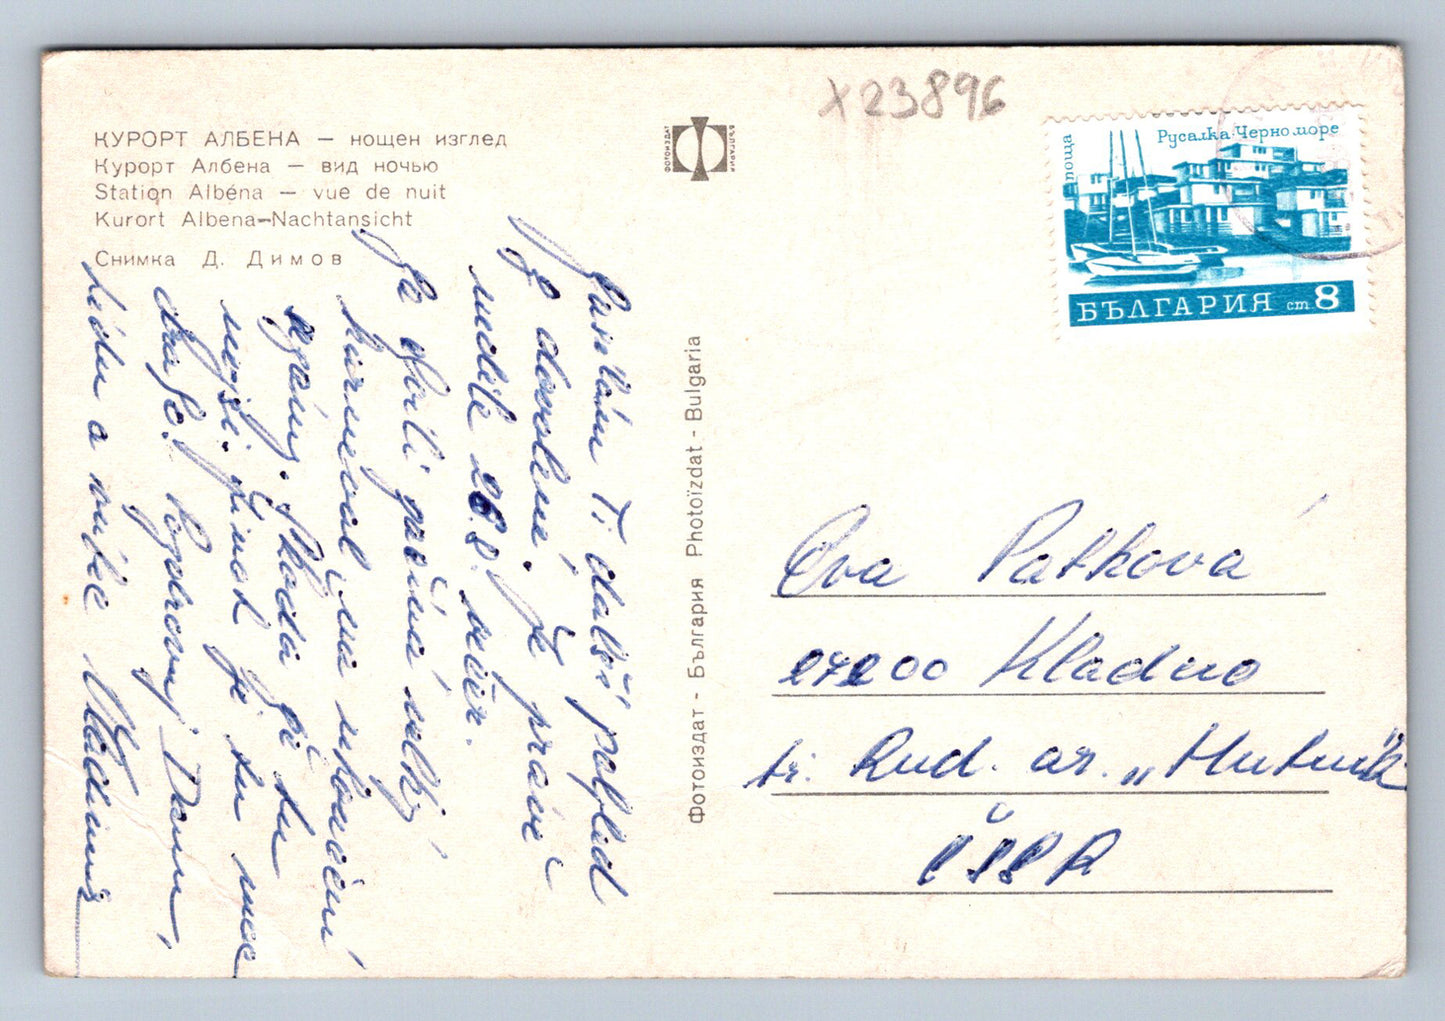 КУРОРТ АЛБЕНА — нощен изглед
Курорт Албена — вид ночью
Station Albéna — vue de nuit
Kurort Albena-Nachtansicht
Снимка Д. Димов
ФОТОИЗДАТ
БЪЛГАРИЯ
X23896
поща
Русалка·Черно море
БЪЛГАРИЯ ст 8
Фотоиздат - България Photoïzdat - Bulgaria
Ti další pohled
z dovolené. Je právě
neděle 26.8. večer.
Je velký
karneval na
Škoda že tu
nejsi. Jinak je tu moc
draho. Pozdravuj Danu,
Lídu a
Eva Patková
27200 Kladno
tř. Rud. ar. „Hutník
ČSSR